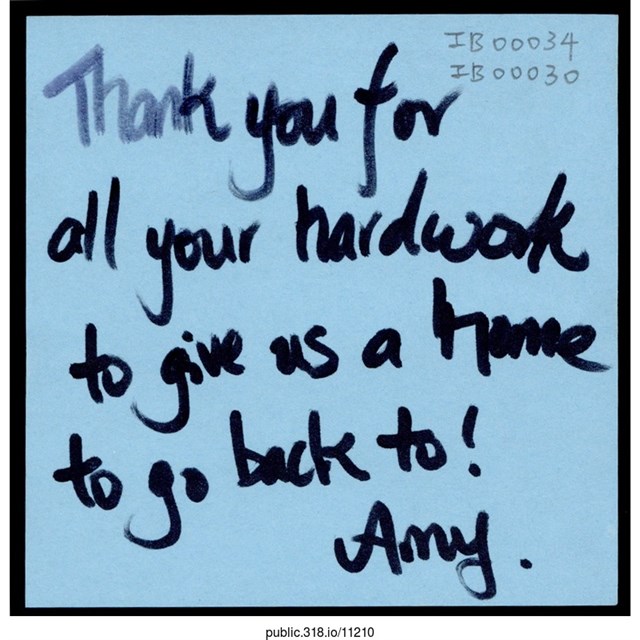 IB00034
IB00030
Thank you for
all your hardwork
to give us a home
to go back to!
Amy.
public.318.io/11210